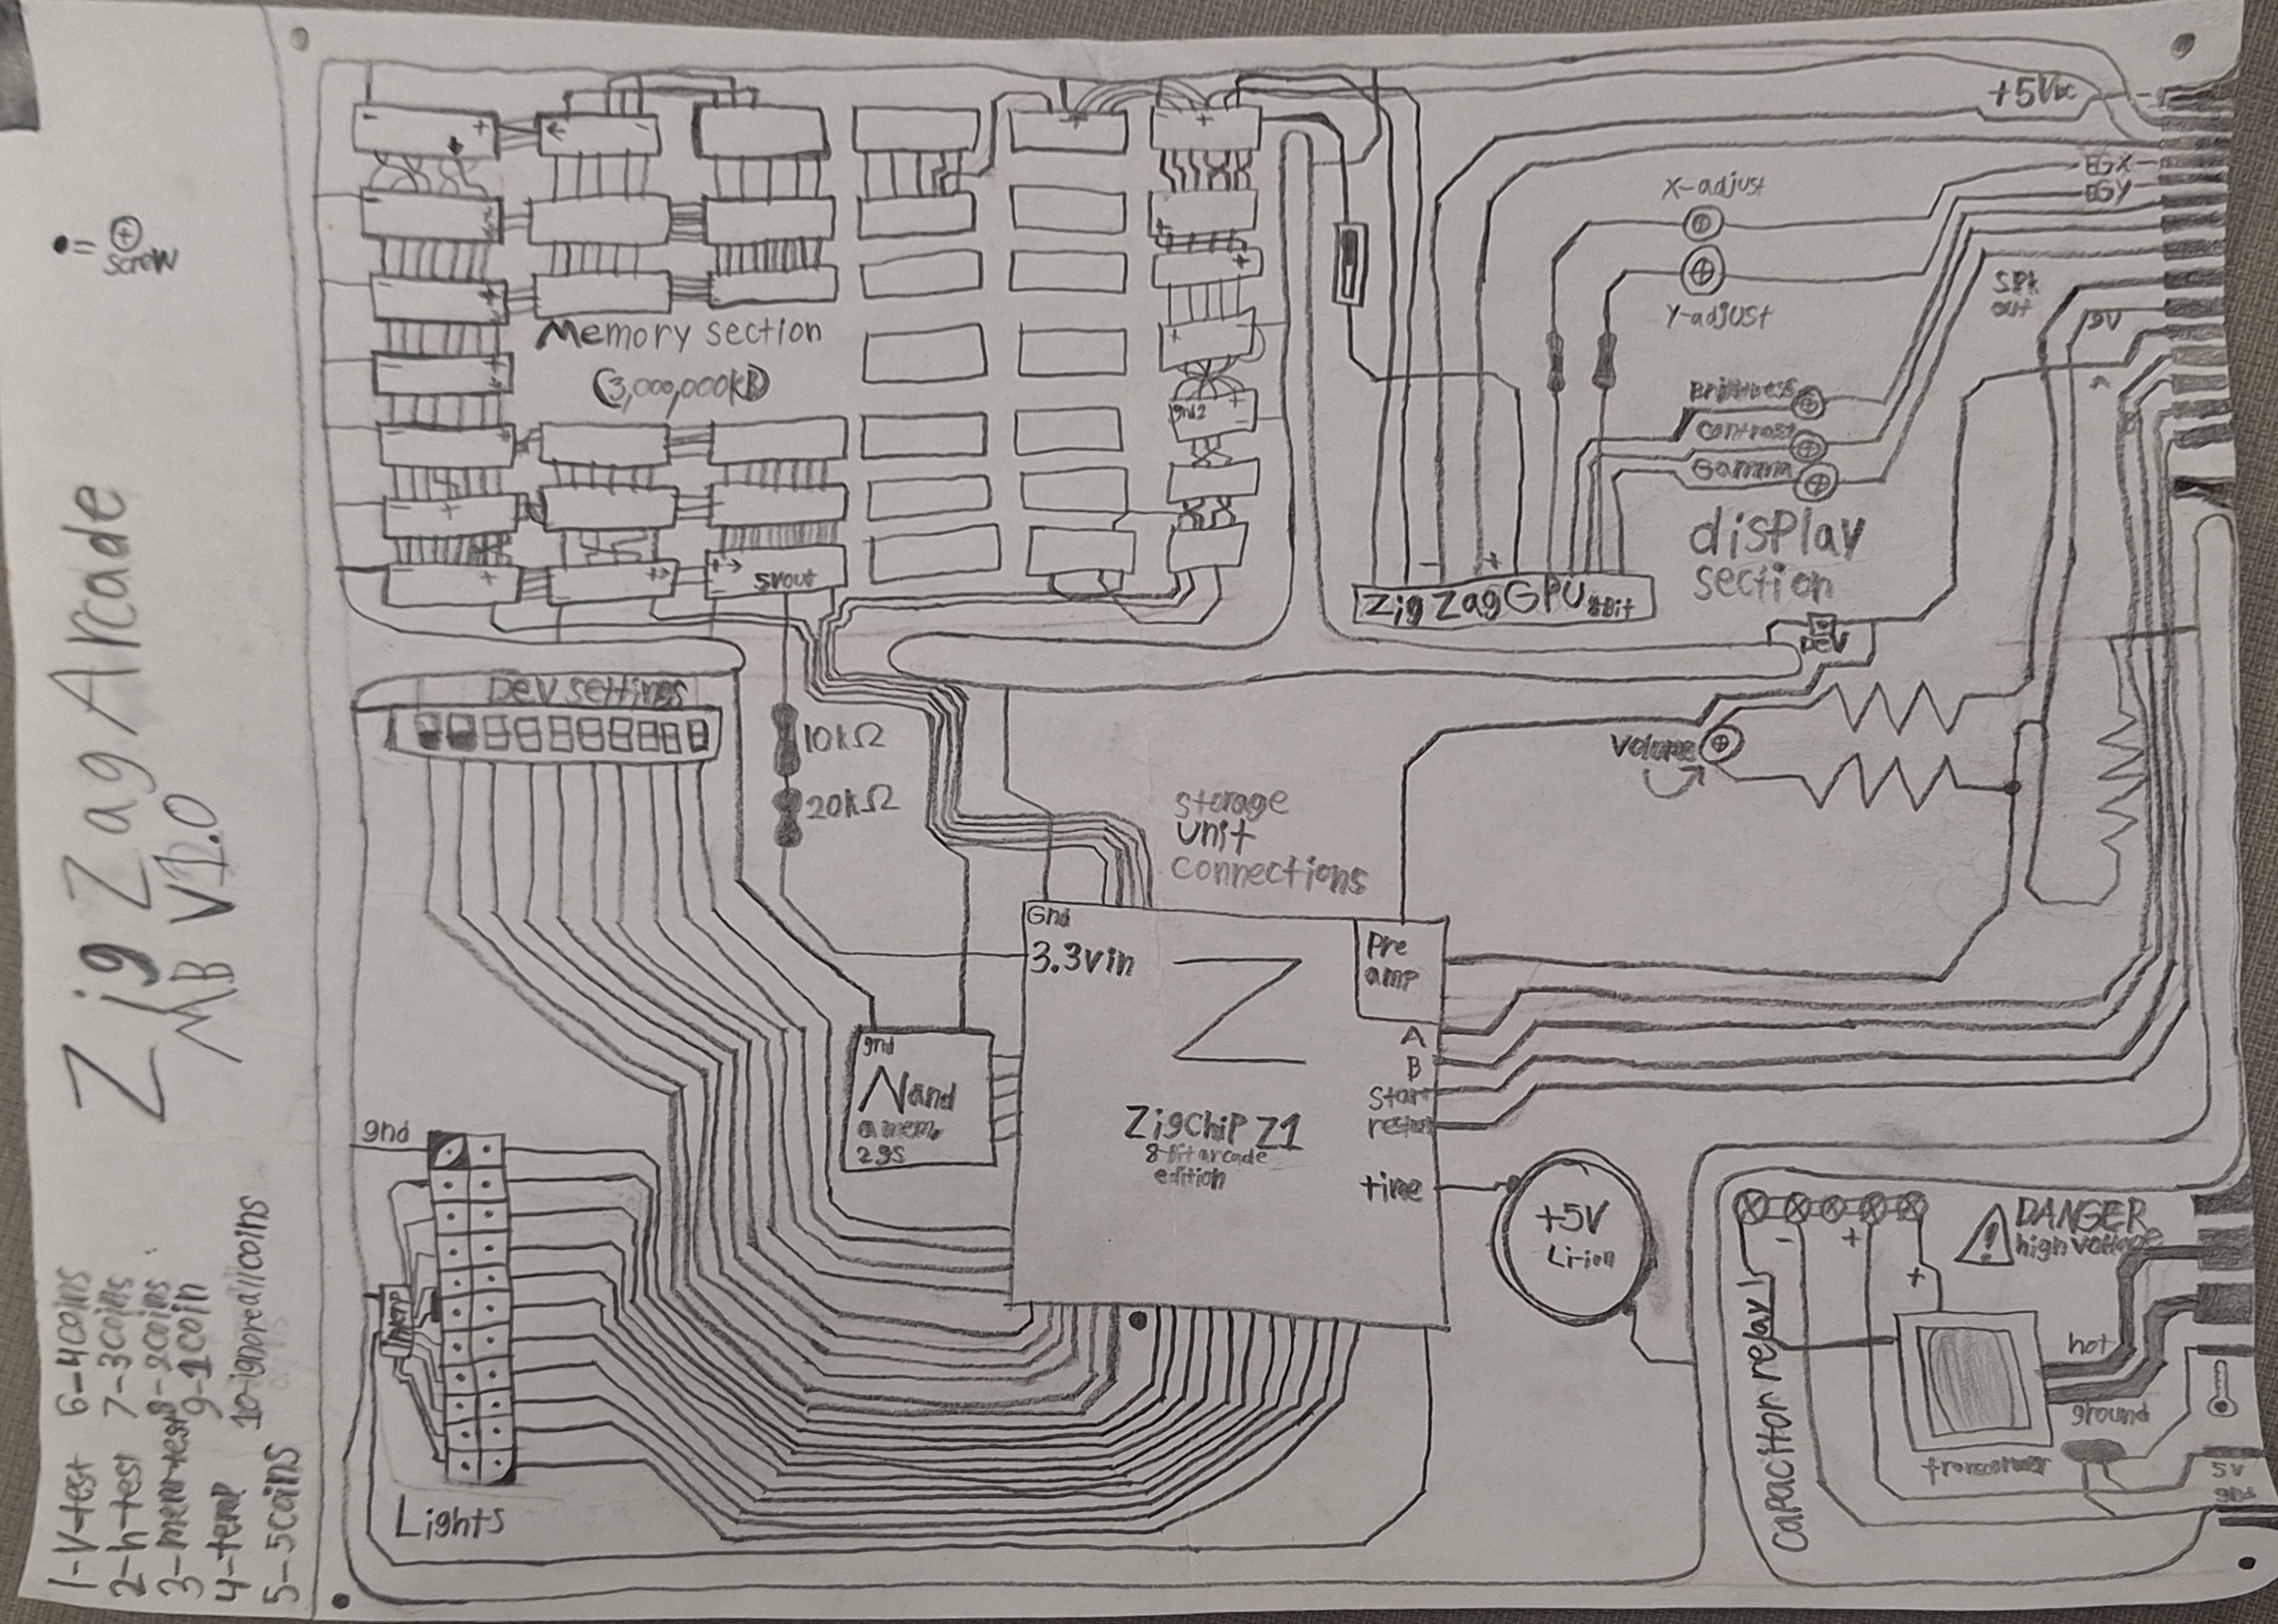 Zig Zag Arcade
MB V1.0
•= ⊕
screw
1-V-test
2-h-test
3-memtest
4-temp
5-5coins
6-4coins
7-3coins
8-2coins
9-1coin
10-ignoreallcoins
Memory section
(3,000,000kB)
5vout
gnd2
+5VDC
EGX
EGY
X-adjust
Y-adjust
SPK
out
9V
contrast
Gamma
display
section
ZigZagGPU 8Bit
DEV
Dev settings
10kΩ
20kΩ
Volume
storage
unit
connections
Gnd
3.3vin
Pre
amp
Z
A
B
start
ZigChip Z1
8-Bit arcade
edition
time
gnd
Nand
a mem.
+5V
Li-ion
gnd
Lights
DANGER
high voltage
capacitor relay
hot
ground
5V
gnd